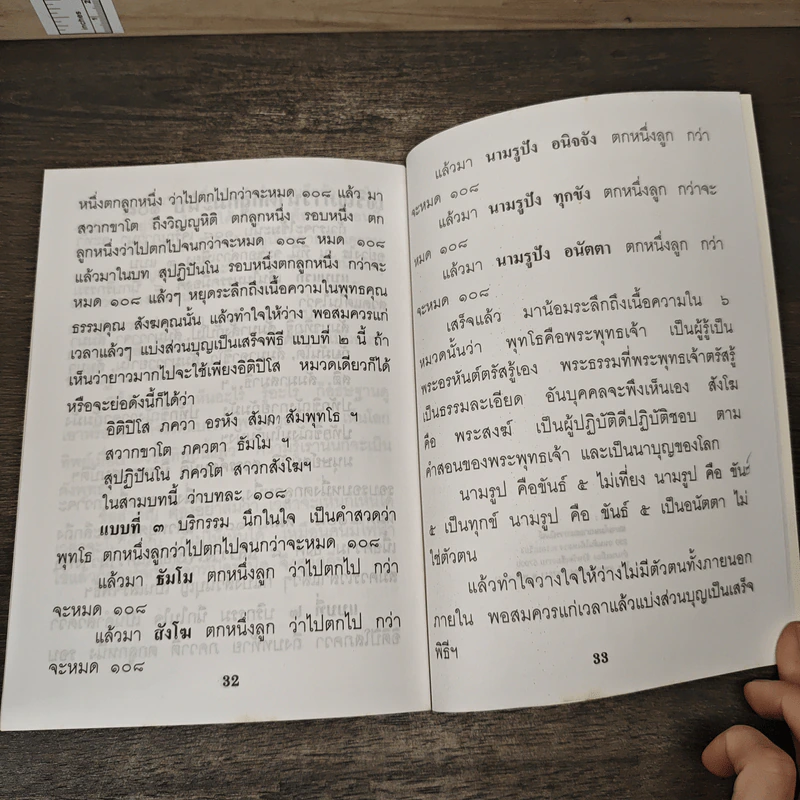 หนึ่งตกลูกหนึ่ง ว่าไปตกไปกว่าจะหมด ๑๐๘ แล้ว มา
สวากขาโต ถึงวิญญูหิติ ตกลูกหนึ่ง รอบหนึ่ง ตก
ลูกหนึ่งว่าไปตกไปจนกว่าจะหมด ๑๐๘ หมด ๑๐๘
แล้วมาในบท สุปฏิปันโน รอบหนึ่งตกลูกหนึ่ง กว่าจะ
หมด ๑๐๘ แล้วๆ หยุดระลึกถึงเนื้อความในพุทธคุณ
ธรรมคุณ สังฆคุณนั้น แล้วทำใจให้ว่าง พอสมควรแก่
เวลาแล้วๆ แบ่งส่วนบุญเป็นเสร็จพิธี แบบที่ ๒ นี้ ถ้า
เห็นว่ายาวมากไปจะใช้เพียงอิติปิโส หมวดเดียวก็ได้
หรือจะย่อดังนี้ก็ได้ว่า
อิติปิโส ภควา อรหัง สัมมา สัมพุทโธ ฯ
สวากขาโต ภควตา ธัมโม ฯ
สุปฏิปันโน ภควโต สาวกสังโฆฯ
ในสามบทนี้ ว่าบทละ ๑๐๘
แบบที่ ๓ บริกรรม นึกในใจ เป็นคำสวดว่า
พุทโธ ตกหนึ่งลูกว่าไปตกไปจนกว่าจะหมด ๑๐๘
แล้วมา ธัมโม ตกหนึ่งลูก ว่าไปตกไป กว่า
จะหมด ๑๐๘
แล้วมา สังโฆ ตกหนึ่งลูก ว่าไปตกไป กว่า
จะหมด ๑๐๘
32
แล้วมา นามรูปัง อนิจจัง ตกหนึ่งลูก กว่า
จะหมด ๑๐๘
แล้วมา นามรูปัง ทุกขัง ตกหนึ่งลูก กว่าจะ
หมด ๑๐๘
แล้วมา นามรูปัง อนัตตา ตกหนึ่งลูก กว่า
จะหมด ๑๐๘
เสร็จแล้ว มาน้อมระลึกถึงเนื้อความใน ๖
หมวดนั้นว่า พุทโธคือพระพุทธเจ้า เป็นผู้รู้เป็น
พระอรหันต์ตรัสรู้เอง พระธรรมที่พระพุทธเจ้าตรัสรู้
เป็นธรรมละเอียด อันบุคคลจะพึงเห็นเอง สังโฆ
คือ พระสงฆ์ เป็นผู้ปฏิบัติดีปฏิบัติชอบ ตาม
คำสอนของพระพุทธเจ้า และเป็นนาบุญของโลก
นามรูป คือขันธ์ ๕ ไม่เที่ยง นามรูป คือ ขันธ์
๕ เป็นทุกข์ นามรูป คือ ขันธ์ ๕ เป็นอนัตตา ไม่
ใช่ตัวตน
แล้วทำใจวางใจให้ว่างไม่มีตัวตนทั้งภายนอก
ภายใน พอสมควรแก่เวลาแล้วแบ่งส่วนบุญเป็นเสร็จ
พิธีฯ
33